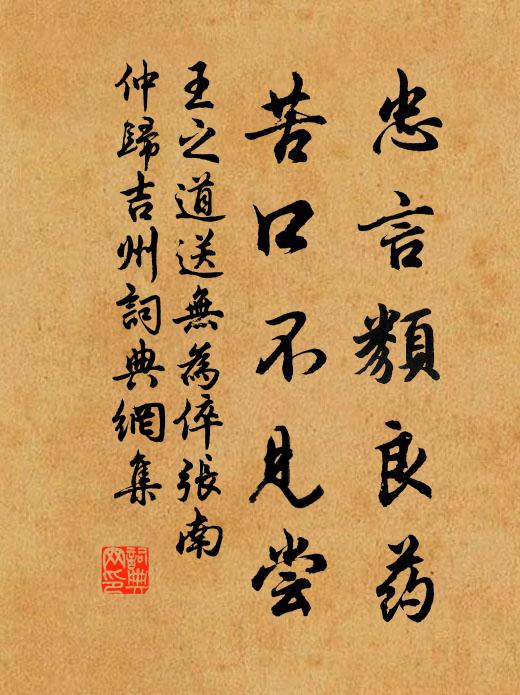 忠言類良药
苦口不見尝
王之道送無為倅張南
仲歸吉州詞典網集
詞典网印